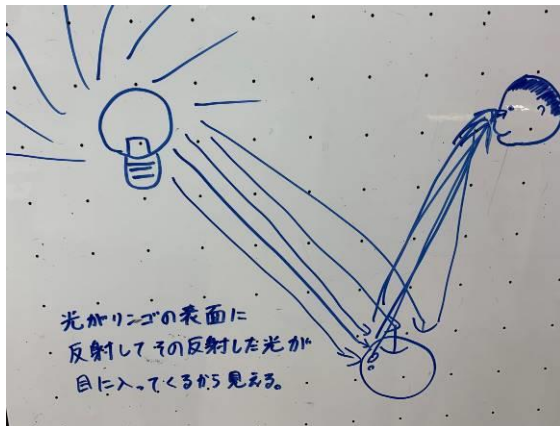 光がリンゴの表面に
反射してその反射した光が
目に入ってくるから見える。